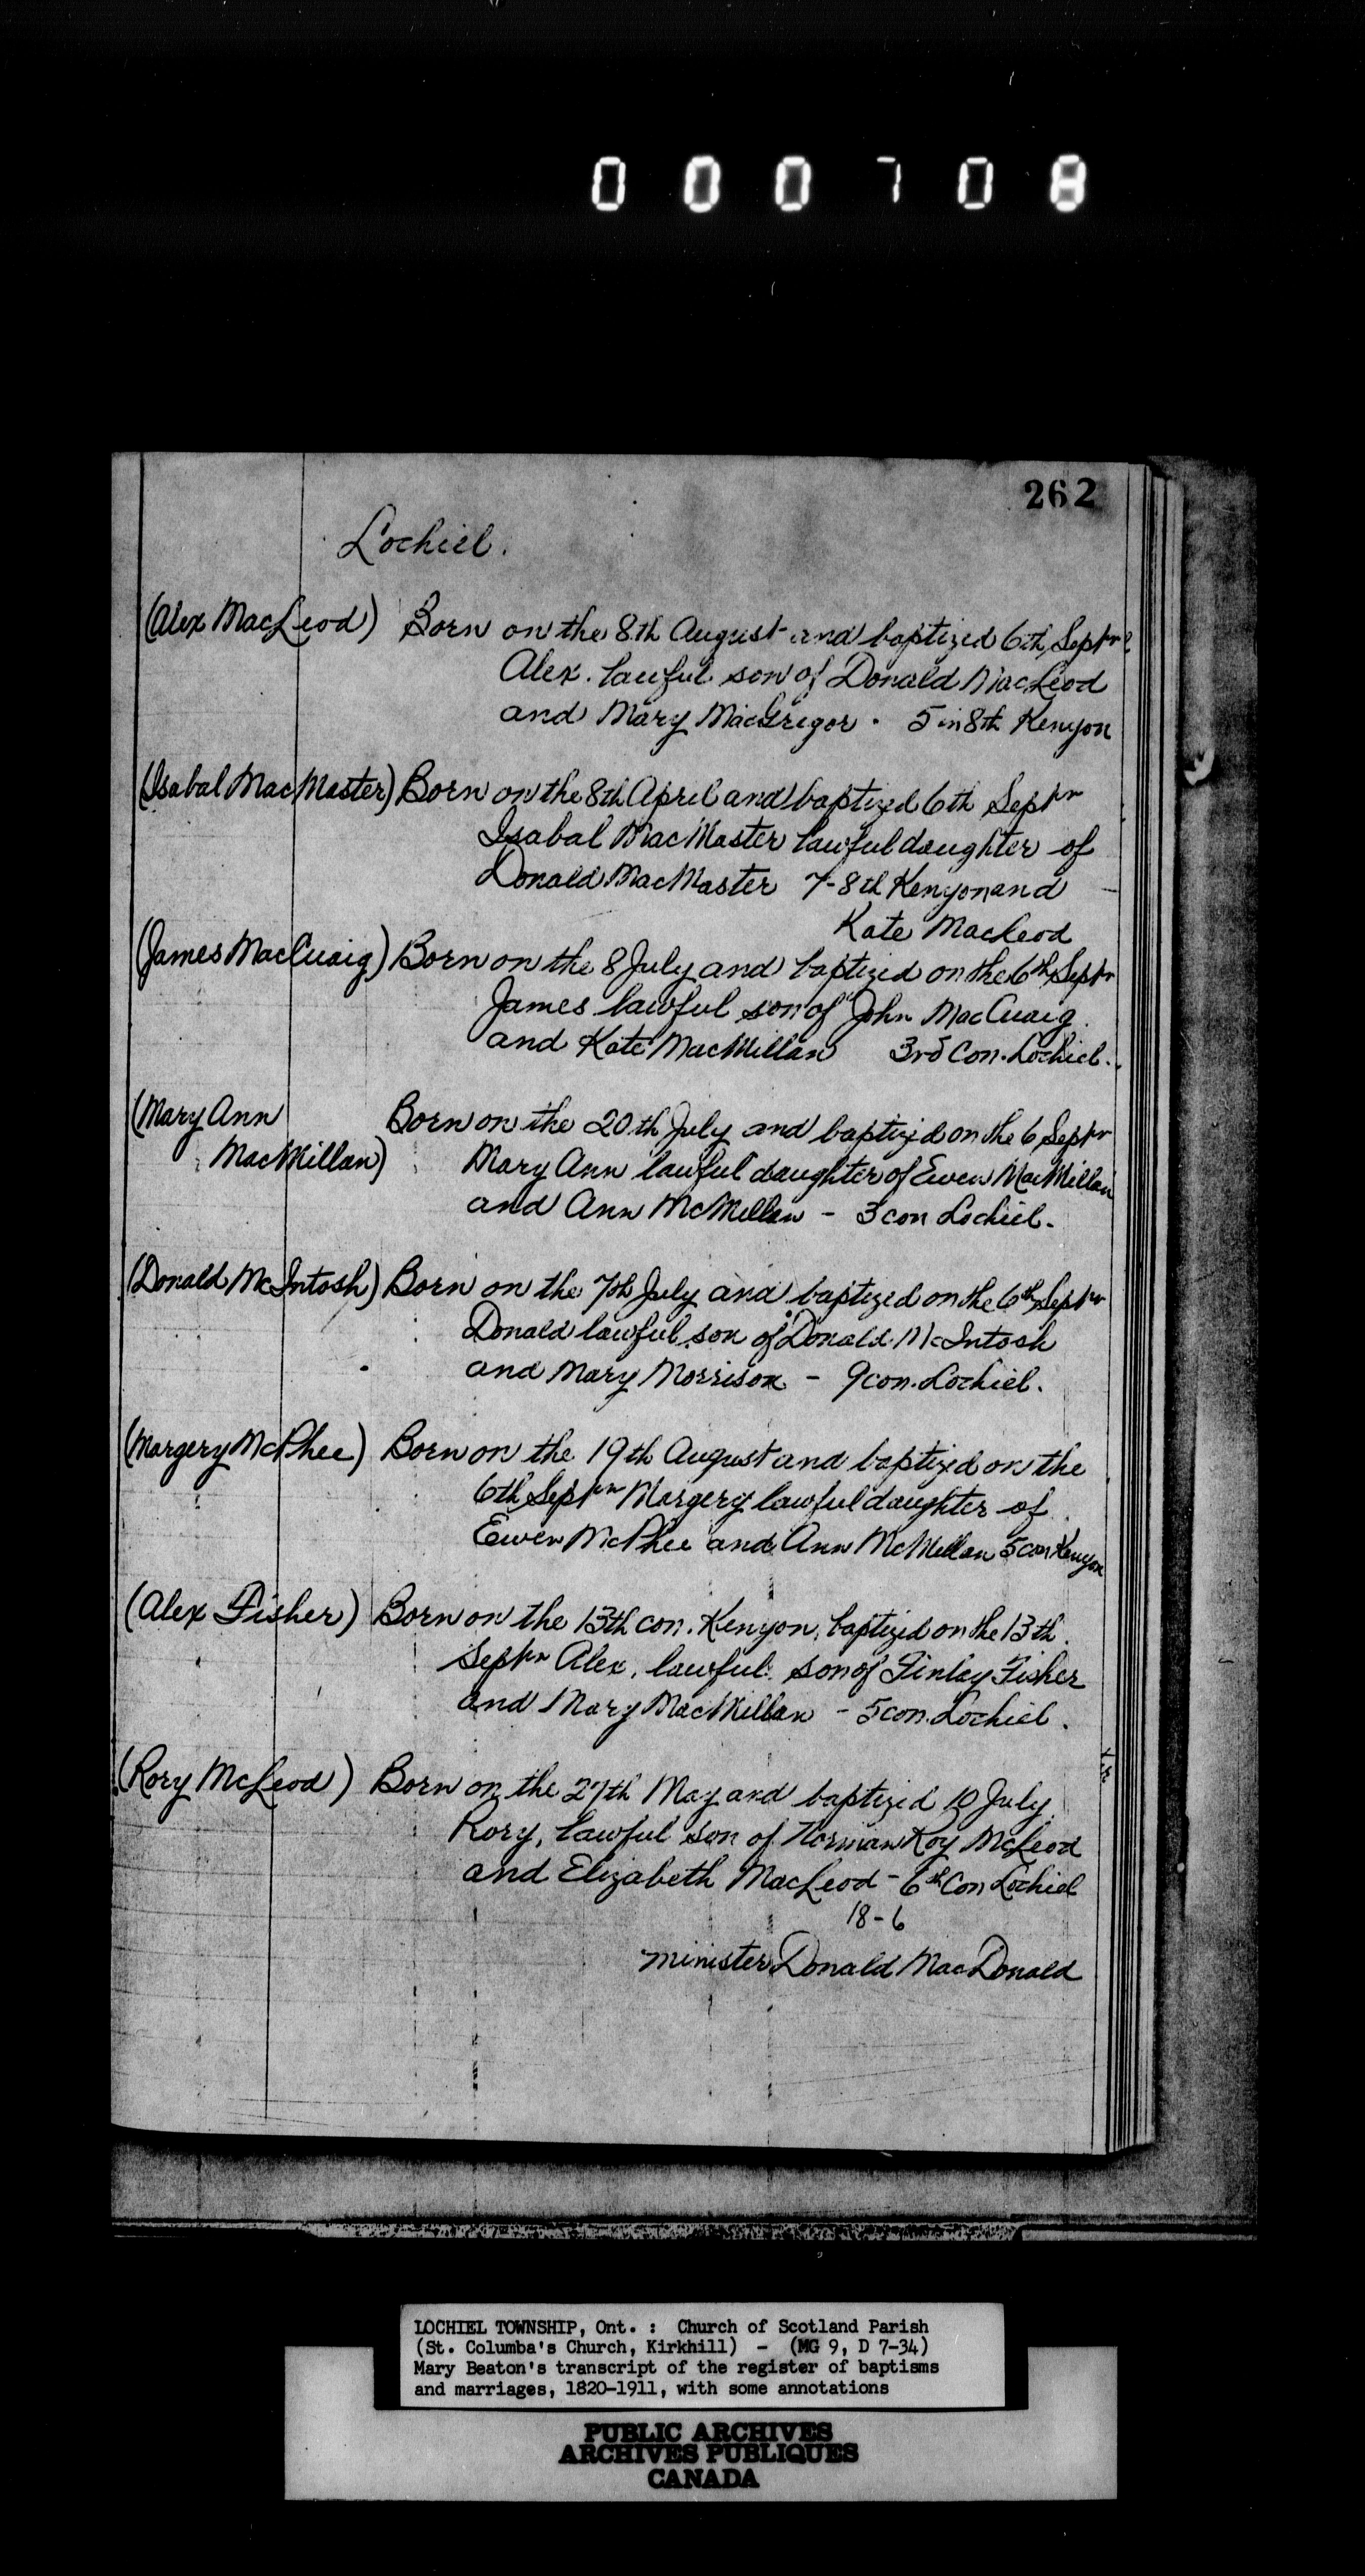 000708
262
Lochiel.
(Alex MacLeod) Born on the 8th August and baptized 6th Septr
Alex. lawful son of Donald MacLeod
and Mary MacGregor. 5 in 8th Kenyon
(Isabal MacMaster) Born on the 8th April and baptized 6th Septr
Isabal MacMaster lawful daughter of
Donald MacMaster 7-8th Kenyon and
Kate MacLeod
(James MacCuaig) Born on the 8 July and baptized on the 6th Septr
James lawful son of John MacCuaig
and Kate MacMillan 3rd Con. Lochiel.
(Mary Ann Born on the 20th July and baptized on the 6 Septr
MacMillan) Mary Ann lawful daughter of Ewen MacMillan
and Ann McMillan - 3 con Lochiel.
(Donald McIntosh) Born on the 7th July and baptized on the 6th Septr
Donald lawful son of Donald McIntosh
and Mary Morrison - 9 con. Lochiel.
(Margery McPhee) Born on the 19th August and baptized on the
6th Septr Margery lawful daughter of
Ewen McPhee and Ann McMillan 5 con Kenyon
(Alex Fisher) Born on the 13th con. Kenyon, baptized on the 13th
Septr Alex, lawful son of Finlay Fisher
and Mary MacMillan - 5 con. Lochiel.
(Rory McLeod) Born on the 27th May and baptized 10 July
Rory, lawful son of Norman Roy McLeod
and Elizabeth MacLeod - 6th Con Lochiel
18-6
minister Donald MacDonald
LOCHIEL TOWNSHIP, Ont. : Church of Scotland Parish
(St. Columba's Church, Kirkhill) - (MG 9, D 7-34)
Mary Beaton's transcript of the register of baptisms
and marriages, 1820-1911, with some annotations
PUBLIC ARCHIVES
ARCHIVES PUBLIQUES
CANADA